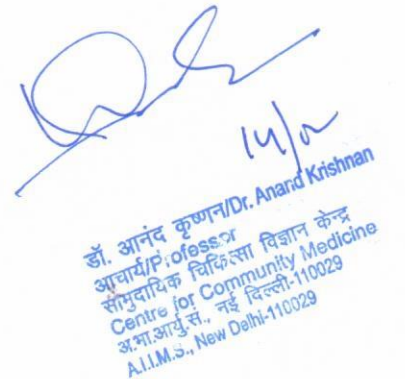 14/02
डॉ. आनंद कृष्णन/Dr. Anand Krishnan
आचार्य/Professor
सामुदायिक चिकित्सा विज्ञान केन्द्र
Centre for Community Medicine
अ.भा.आर्यु.सं., नई दिल्ली-110029
A.I.I.M.S., New Delhi-110029